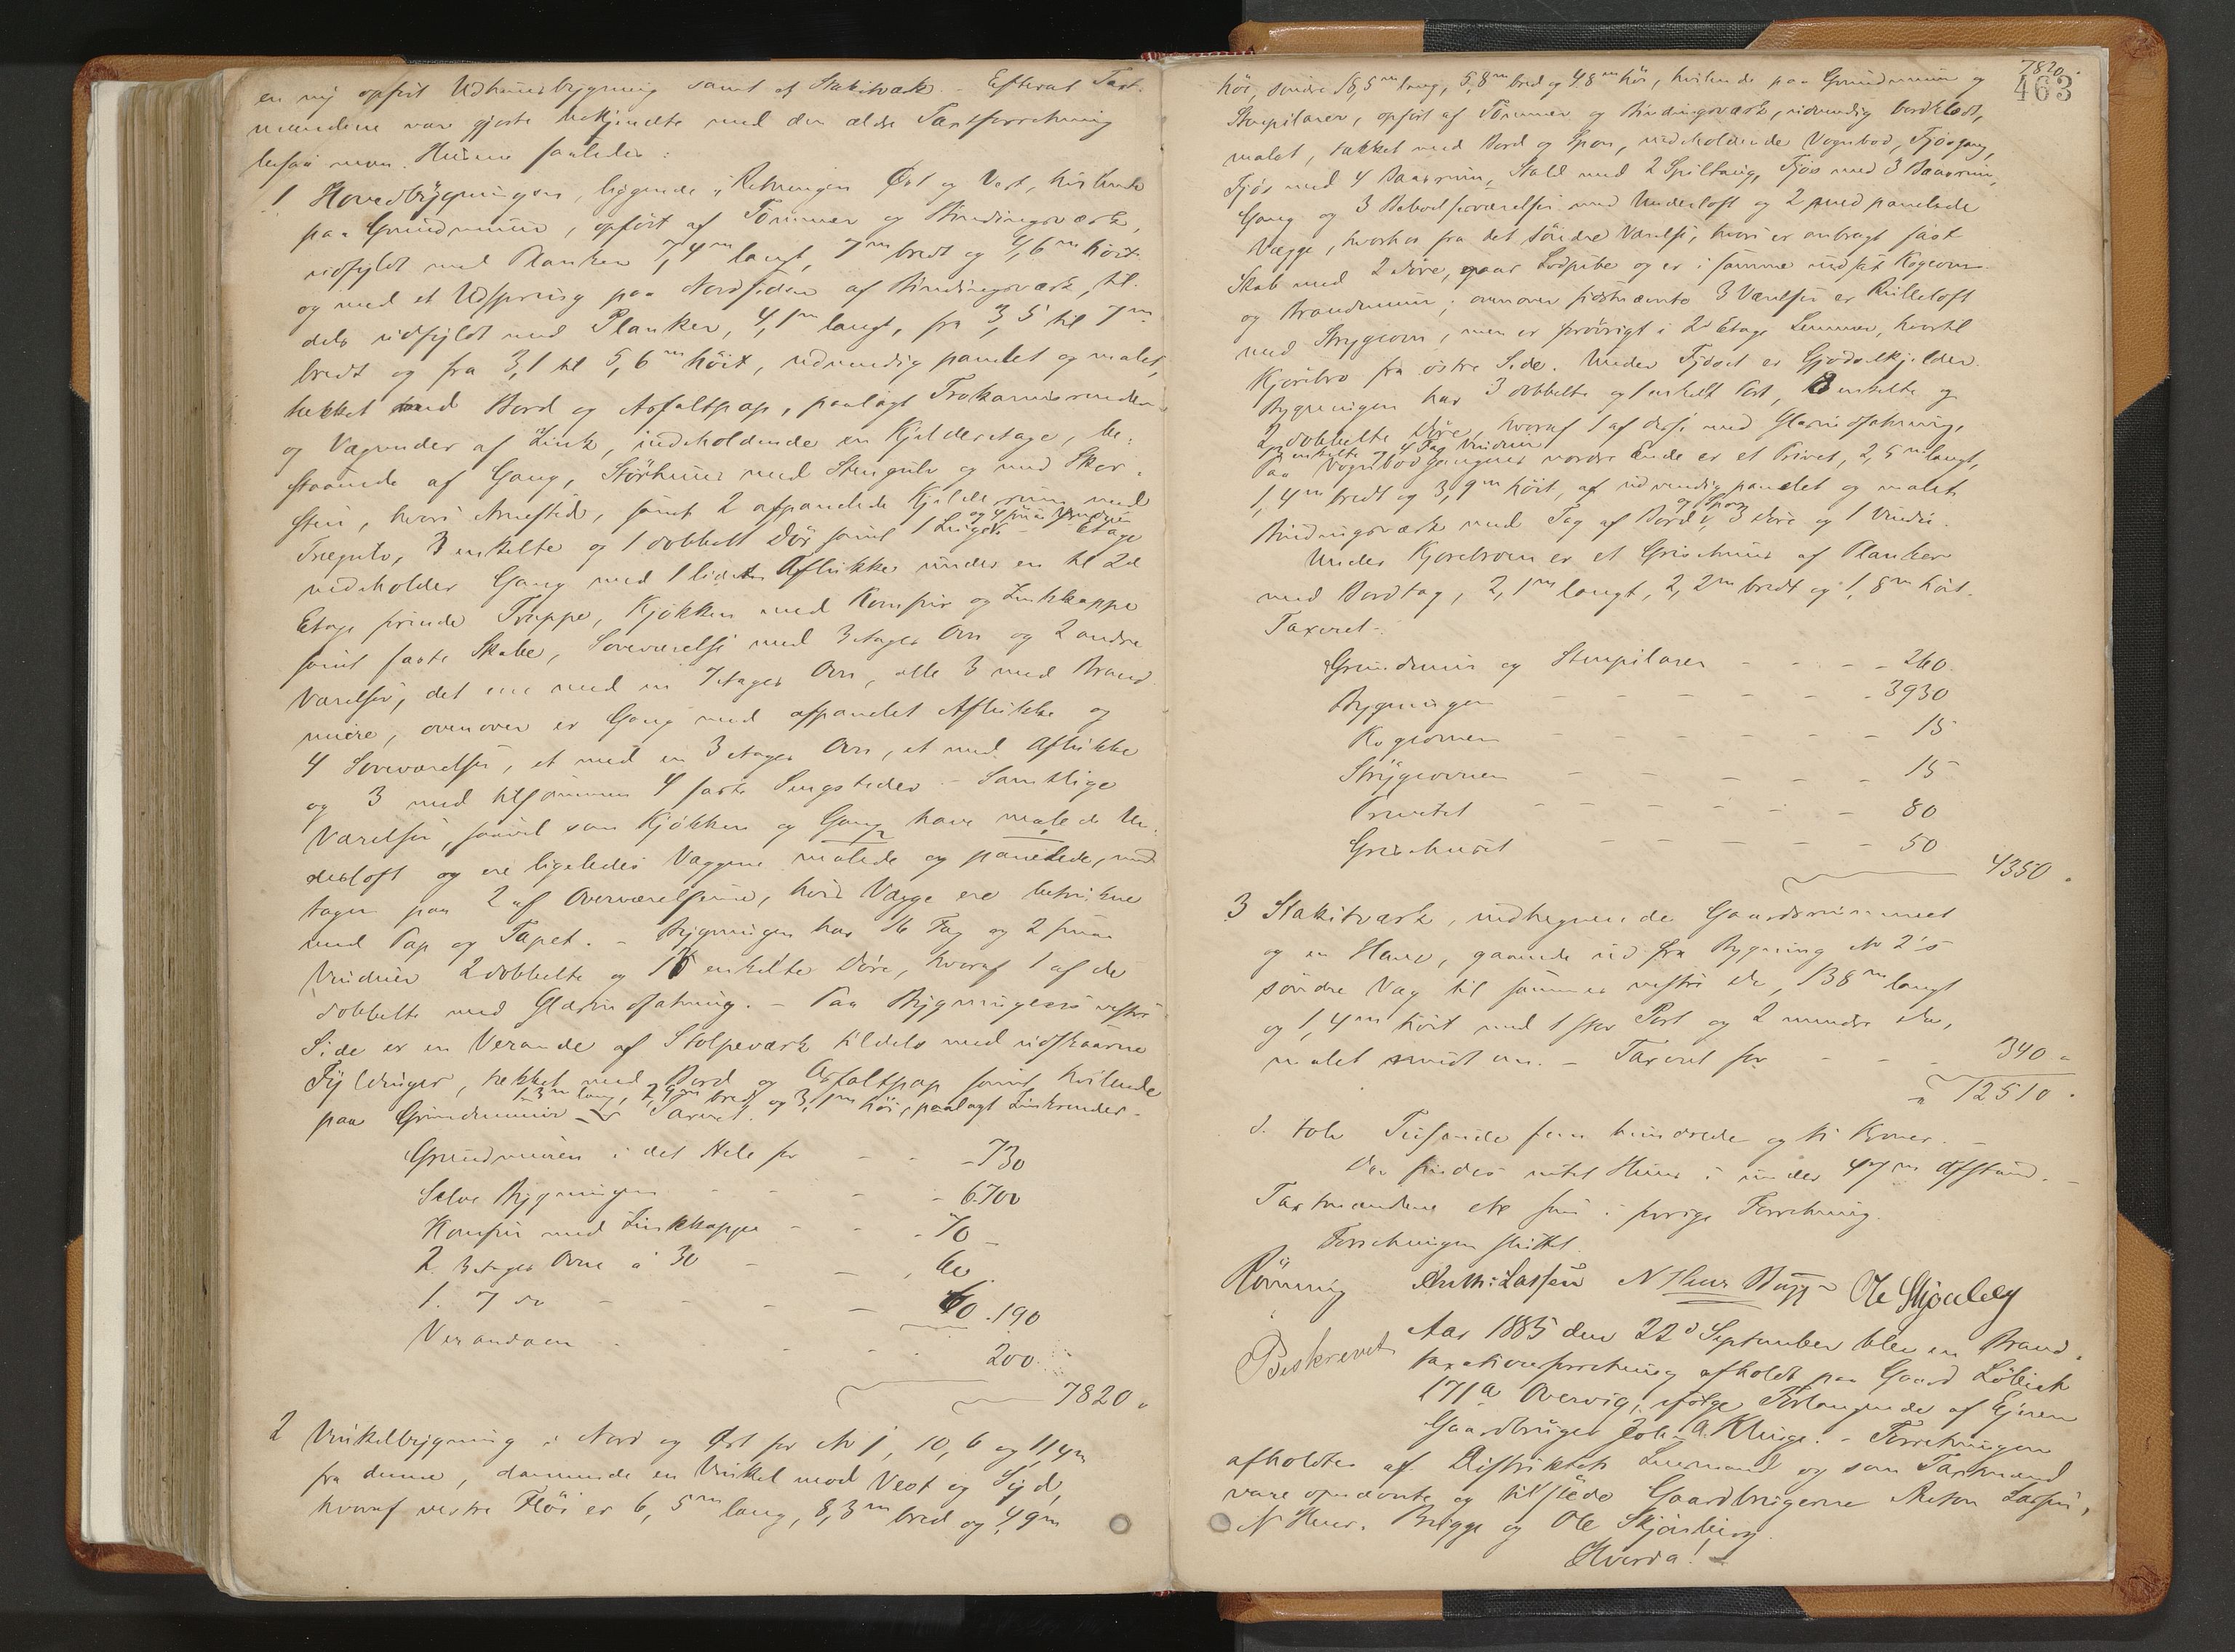 en ny opført Udhuusbygning samt et Stakitværk. - Efterat Taxt-
mændene vare gjorte bekjendte med den ældre Taxtforretning
besaa man Husene saaledes:
1 Hovedbygningen, liggende i Retningen Øst og Vest, hvilende
paa Grundmuur, opført af Tømmer og Bindingsværk,
udfyldt med Planker 7,4m langt, 7m bredt og 4,6m høit
og med et Udspring paa Nordsiden af Bindingsværk, til-
dels udfyldt med Planker, 4,1m langt, fra 3,5 til 7m
bredt og fra 3,1 til 5,6m høit, udvendig panelet og malet,
tækket med Bord og Asfaltpap, paalagt
og Vegrender af Zink, indeholdende en Kjelderetage, be-
staaende af Gang, Størhuus med Steengulv og med Skor-
steen, hvori Arnested, samt 2 afpanelede Kjelderrum med
og 4 smaa Vinduer
Trægulv, 3 enkelte og 1 dobbelt Dør samt 1 Luge. - Etage
indeholder Gang med 1 lidet Aflukke under en til 2d
Etage førende Trappe, Kjøkken med Komfur og Zinkkappe
samt faste Skabe, Soveværelse med 3etages Ovn og 2 andre
Værelser, det ene med en 7etages Ovn, alle 3 med Brand-
mure, ovenover er Gang med afpanelet Aflukke og
4 Soveværelser, et med en 3etages Ovn, et med Aflukke
og 3 med tilsammen 4 faste Sengesteder. - Samtlige
Værelser, saavel som Kjøkken og Gang have malede Un-
derloft og ere ligeledes Væggene malede og panelede, und-
tagen paa 2 af Overværelserne, hvis Vægge ere betrukne
med Pap og Tapet. - Bygningen har 16 Fag og 2 smaa
Vinduer 2 dobbelte og 15 enkelte Døre, hvoraf 1 af de
dobbelte med Glasindfatning. - Paa Bygningens vestre
Side er en Veranda af Stolpeværk tildels med udskaarne
Fyldinger, tækket med Bord og Asfaltpap samt hvilende
1,3m lang, 2,9m bred og 3,1m høi, paalagt Zinkrender.
paa Grundmuur Taxeret.
Grundmuren i det Hele for - - 730
Selve Bygningen - - - 6700
Komfur med Zinkkappe - - 70
2 3etages Ovne à 30 - - 60
1. 7 do - - - - 60 . 190
Verandaen - - - - 200
7820 "
2 Vinkelbygning i Nord og Øst for No 1, 10,6 og 11,4m
fra denne, dannende en Vinkel mod Vest og Syd,
hvoraf vestre Fløi er 6,5m lang, 8,3m bred og 4,9m
7820.
463
høi, søndre 18,5m lang, 5,8m bred og 4,8m høi, hvilende paa Grundmuur og
Steenpilarer, opført af Tømmer og Bindingsværk, udvendig bordklædt,
malet, tækket med Bord og Spon, indeholdende Vognbod, Fjøsgang,
Fjøs med 4 Baasrum, Stald med 2 Spiltaug, Fjøs med 3 Baasrum,
Gang og 3 Beboelsesværelser med Underloft og 2 med panelede
Vægge, hvorhos fra det søndre Værelse, hvori er anbragt fast
Skab med 2 Døre, gaar Lodpibe og er i samme indsat Kogeovn
og Brandmuur; ovenover sidstnævnte 3 Værelser er Rulleloft
med Strygeovn, men er forøvrigt i 2d Etage Lemmer, hvortil
Kjørebro fra østre Side. Under Fjøset er Gjødselkjelder.
Bygningen har 3 dobbelte og 1 enkelt Port, 8 enkelte og
2 dobbelte Døre, hvoraf 1 af disse med Glasindfatning,
12 enkelte og 4 Fag Vinduer
Paa Vognbodbygningens nordre Ende er et Privet, 2,5m langt,
1,4m bredt og 3,9m høit, af udvendig panelet og malet
og Spon
Bindingsværk med Tag af Bord, 3 Døre og 1 Vindu.
Under Kjørebroen er et Grisehuus af Planker
med Bordtag, 2,1m langt, 2,2m bredt og 1,8m høit.
Taxeret:
Grundmuur og Steenpilarer - - - - 260.
Bygningen - - - - - - 3930
Kogeovnen - - - - - - 15
Strygeovnen - - - - - 15
Privetet - - - - - - 80
Grisehuset - - - - - 50
4350 "
3 Stakitværk, indhegnende Gaardsrummet
og en Have, gaaende ud fra Bygning No 2's
søndre Væg til sammes vestre do, 138m langt
og 1,4m høit med 1 stor Port og 2 mindre do,
malet rundt om. - Taxeret for - - - 340 "
" 12510 "
d. tolv Tusende fem hundrede og ti Kroner. -
Der findes intet Huus i under 47m Afstand. -
Taxtmændene etc som i forrige Forretning.
Forretningen sluttet.
Rönning Anth: Lassen N Heur Bugge Ole Skjørberg
Beskrevet
Aar 1885 den 22d September blev en Brand-
taxationsforretning afholdt paa Gaard Løbe
171a Overvig, ifølge Forlangende af Ejeren
Gaardbruger Joh. A. Klinge. - Forretningen
afholdtes af Distriktets Lensmand og som Taxtmænd
vare opnævnte og tilstede Gaardbrugerne Anton Lassen,
N Heur. Bugge og Ole Skjørberg.
Hvorda! -